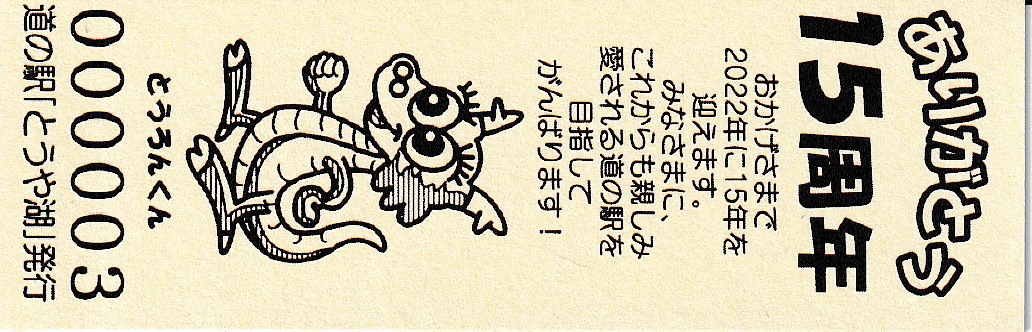 ありがとう
15周年
おかげさまで
2022年に15年を
迎えます。
みなさまに、
これからも親しみ
愛される道の駅を
目指して
がんばります！
とうろんくん
000003
道の駅「とうや湖」発行